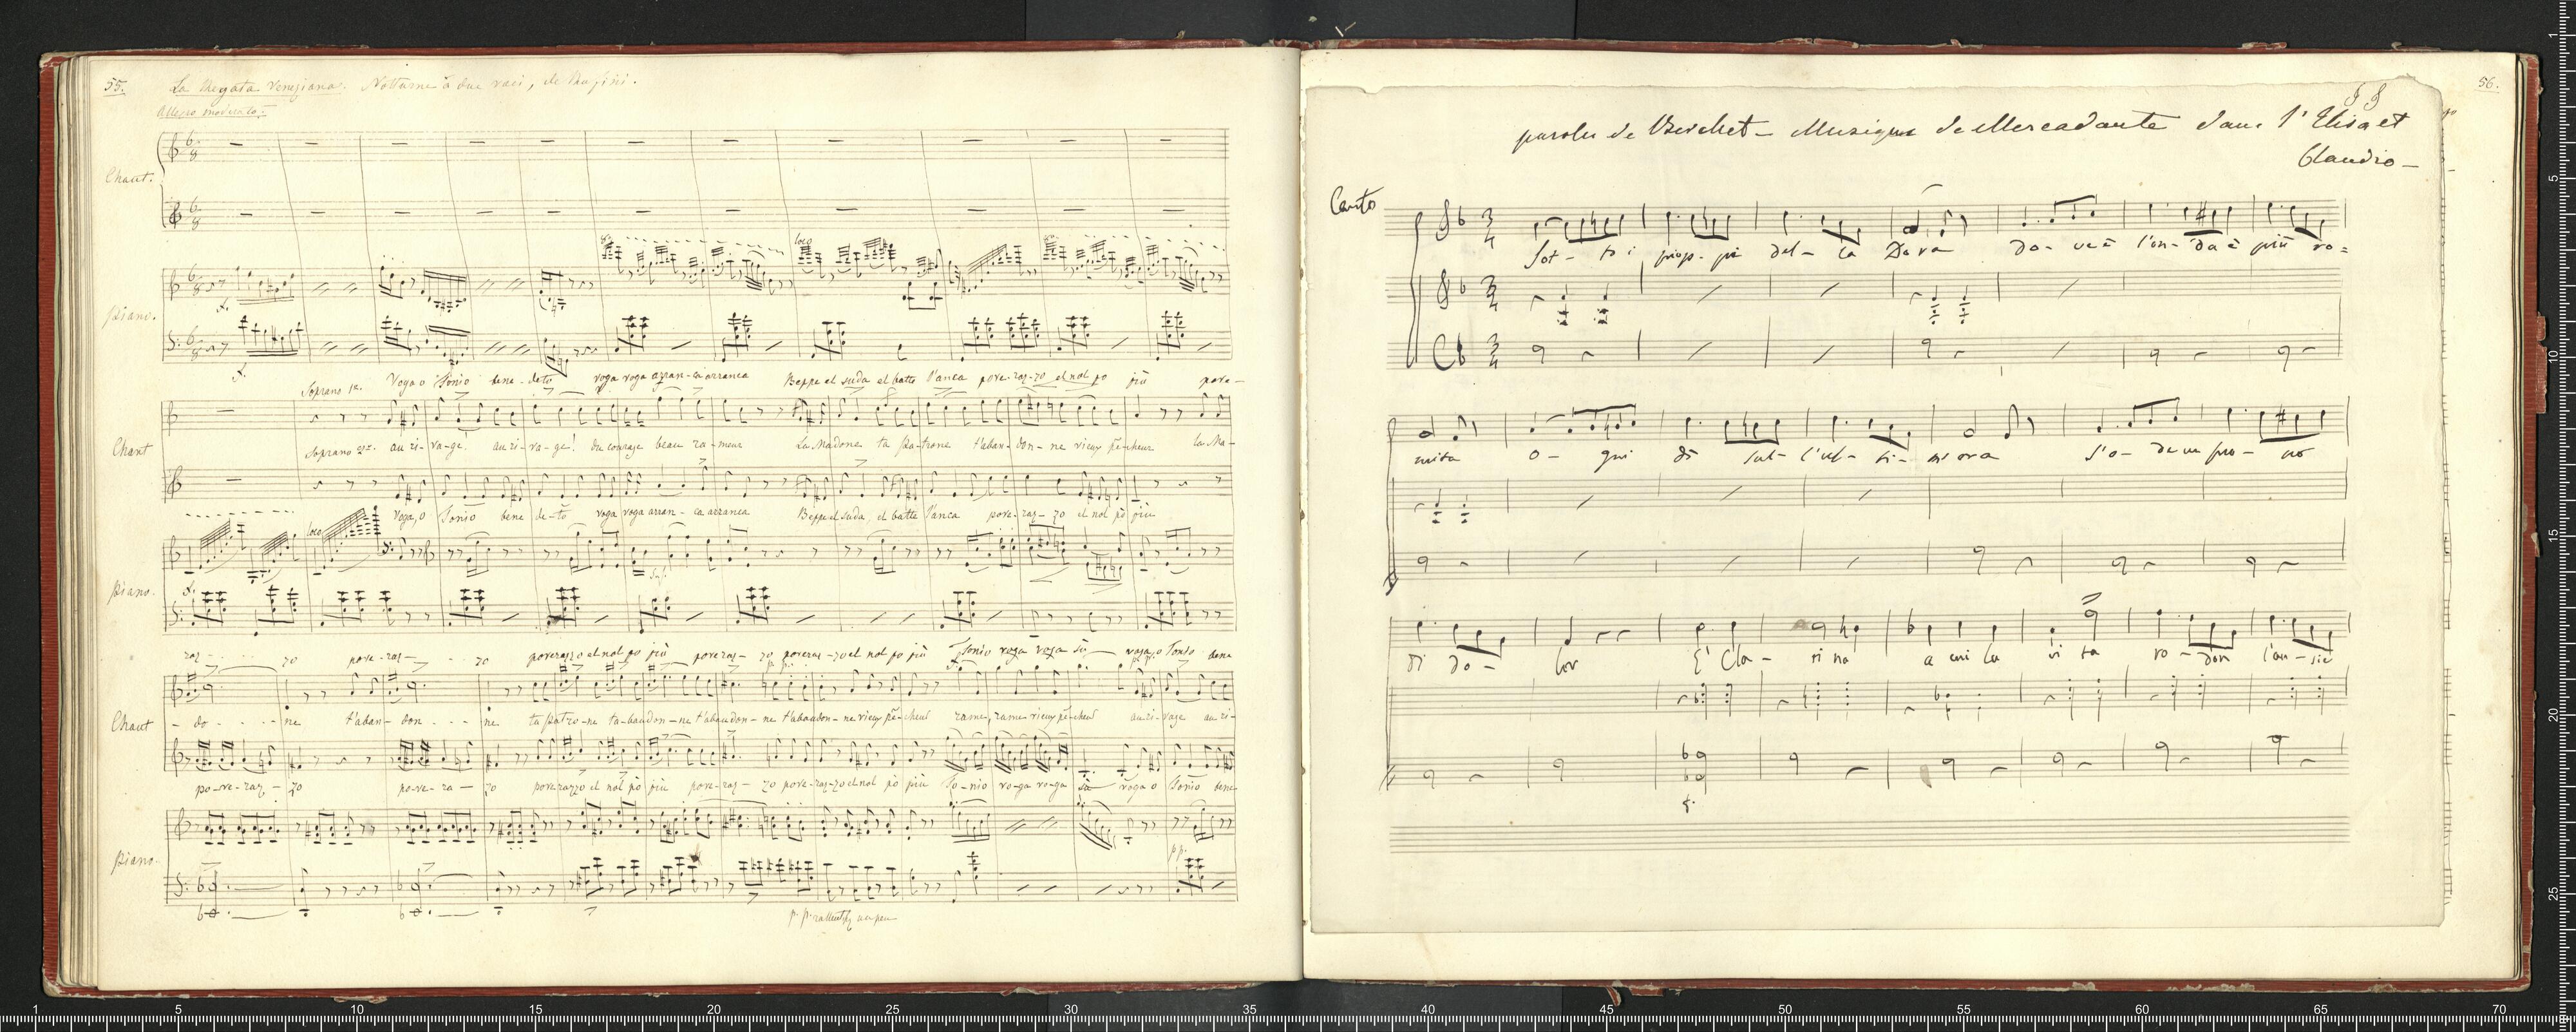 55.
La Regata Veneziana. Notturno a due voci, de Rossini.
Allegro moderato.
Chant.
8va
loco
8va
Piano.
f.
f.
Soprano 1o. Voga o Tonio bene-deto voga voga arran-ca arranca Beppe el suda el batte l'anca pove-raz-zo el nol po più pove-
Chant
Soprano 2o. au ri-va-ge! au ri-va-ge! du courage beau ra-meur La Madone ta pa-trone t'aban-don-ne vieux pê-cheur la Ma-
Voga, o Tonio bene de-to voga voga arran-ca arranca Beppe el suda, el batte l'anca pove-raz-zo el nol pò più
loco
Piano.
f.
raz- zo pove-raz- zo poverazzo el nol po più pove raz- zo poveraz-zo el nol po più Tonio voga voga sù voga, o Tonio bene
Chant
-do----ne t'aban-don---ne ta patro-ne ta-bandon-ne t'abandon-ne t'abandon-ne vieux pê-cheur rame, rame vieux pê-cheur au ri-vage au ri-
po-ve-raz-zo po-ve-ra-zo poverazzo el nol pò più pove-raz-zo pove-raz-zo el nol pò più To-nio vo-ga vo-ga sù voga o Tonio bene
Piano.
pp.
p. p. rallent. un peu
56.
paroles de Berchet - Musique de Mercadante dans l'Elisa et
Claudio -
Canto
Sot-to i piop-pi del-la Dora do-ve è l'on-da è più ro-
mita o-gni dì sul-l'ul-ti-m ora s'o-de un suo-no
di do-lor È Cla-ri na a cui la vi ta ro-don l'an-sie
f.